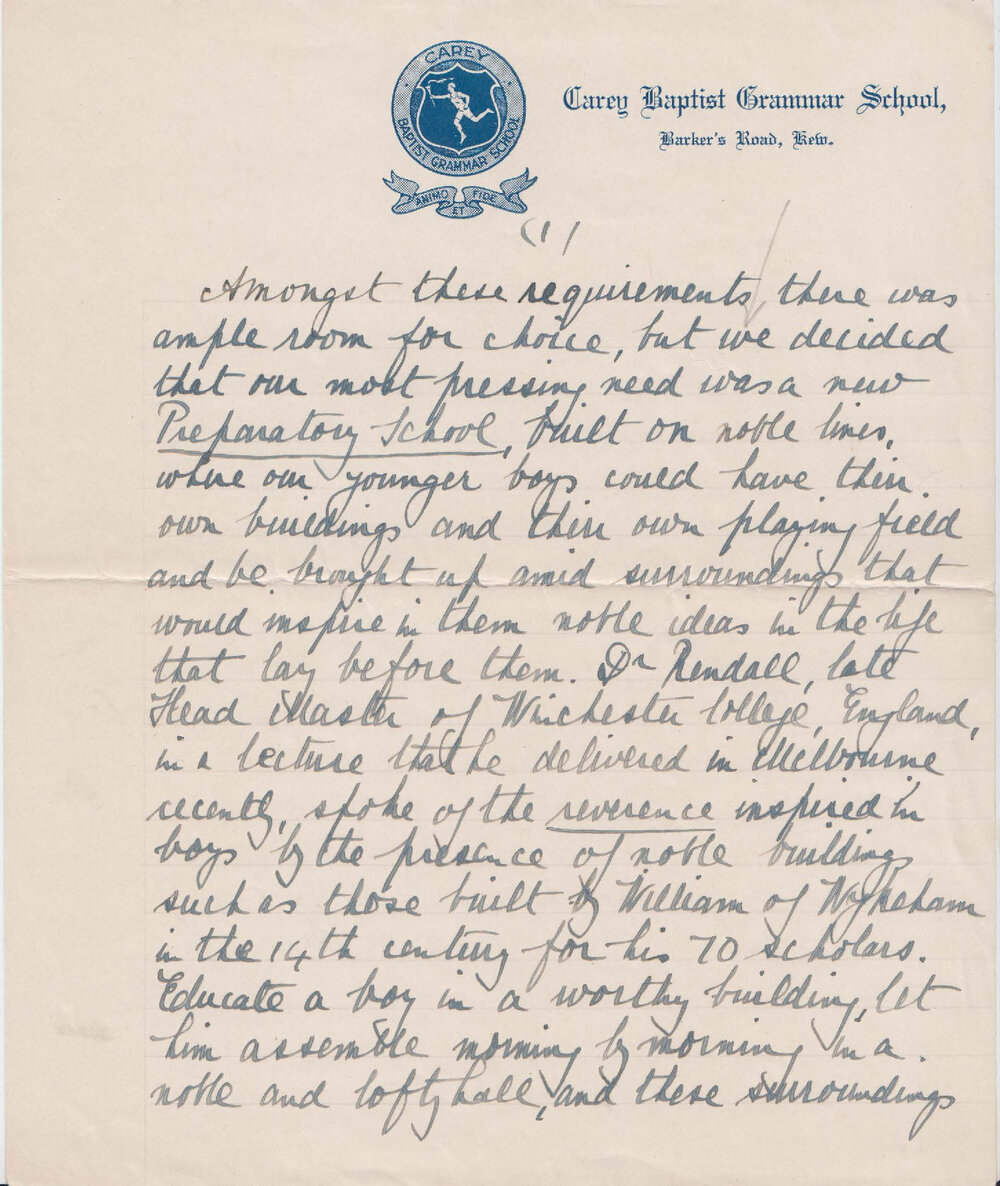 CAREY
BAPTIST GRAMMAR SCHOOL
ANIMO ET FIDE
Carey Baptist Grammar School,
Barker's Road, Kew.
Amongst these requirements there was
ample room for choice, but we decided
that our most pressing need was a new
Preparatory School, built on noble lines,
where our younger boys could have their
own buildings and their own playing field
and be brought up amid surroundings that
would inspire in them noble ideas in the life
that lay before them. Dr Rendall, late
Head Master of Winchester College, England,
in a lecture that he delivered in Melbourne
recently, spoke of the reverence inspired in
boys by the presence of noble buildings
such as those built by William of Wykeham
in the 14th century for his 70 scholars.
Educate a boy in a worthy building, let
him assemble morning by morning in a
noble and lofty hall, and these surroundings